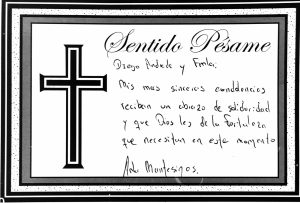 Sentido Pésame
Diego Andrade y Familia:
Mis mas sinceras condolencias
reciban un abrazo de solidaridad
y que Dios les de la fortaleza
que necesitan en este momento
Montesinos.